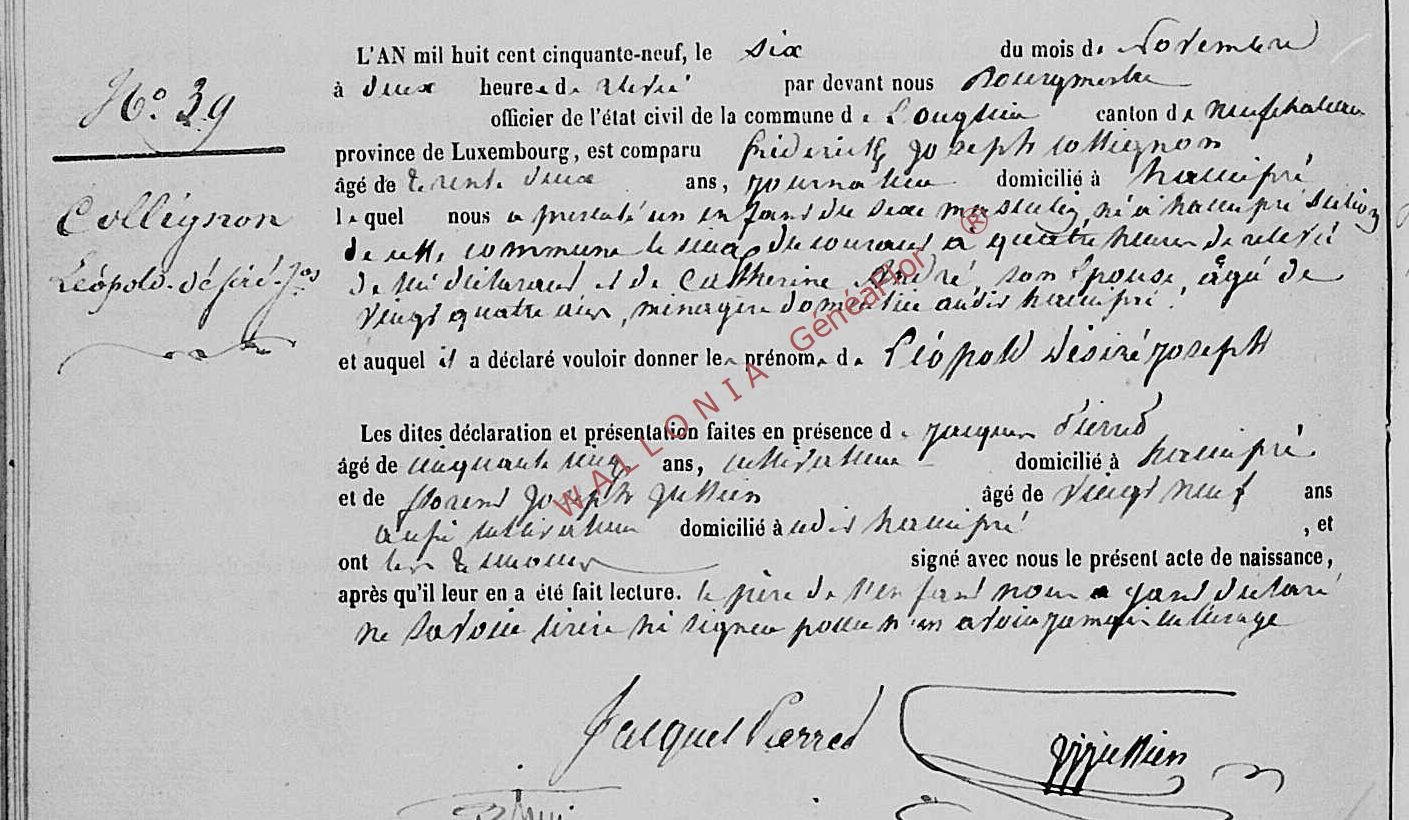 L'AN mil huit cent cinquante-neuf, le six du mois de Novembre
à deux heures de relevé par devant nous Bourgmestre
officier de l'état civil de la commune de Longlier canton de Neufchateau
province de Luxembourg, est comparu fréderick joseph collignon
âgé de trente deux ans, journalier domicilié à hamipré
lequel nous a presenté un enfant du sexe masculin, né à hamipré section
de cette commune le cinq du courant à quatre heures de relevé
de lui déclarant et de Catherine André, son Epouse, agé de
vingt quatre ans, menagère domicilié audit hamipré
et auquel il a déclaré vouloir donner les prénoms de Léopold Désiré joseph
Les dites déclaration et présentation faites en présence de jacques Pierred
âgé de cinquante cinq ans, cultivateur domicilié à hamipré
et de florent joseph jullien âgé de vingt neuf ans
aussi cultivateur domicilié à udit hamipré , et
ont les temoins signé avec nous le présent acte de naissance,
après qu'il leur en a été fait lecture. le père de l'enfant nous ayant déclaré
ne savoir ecrire ni signer pour n'en avoir jamais eu l'usage
N.o 39
Collignon
Léopold-désiré-Jos
Jacques Pierred
fjjullien
WALLONIA GénéaFlor ®